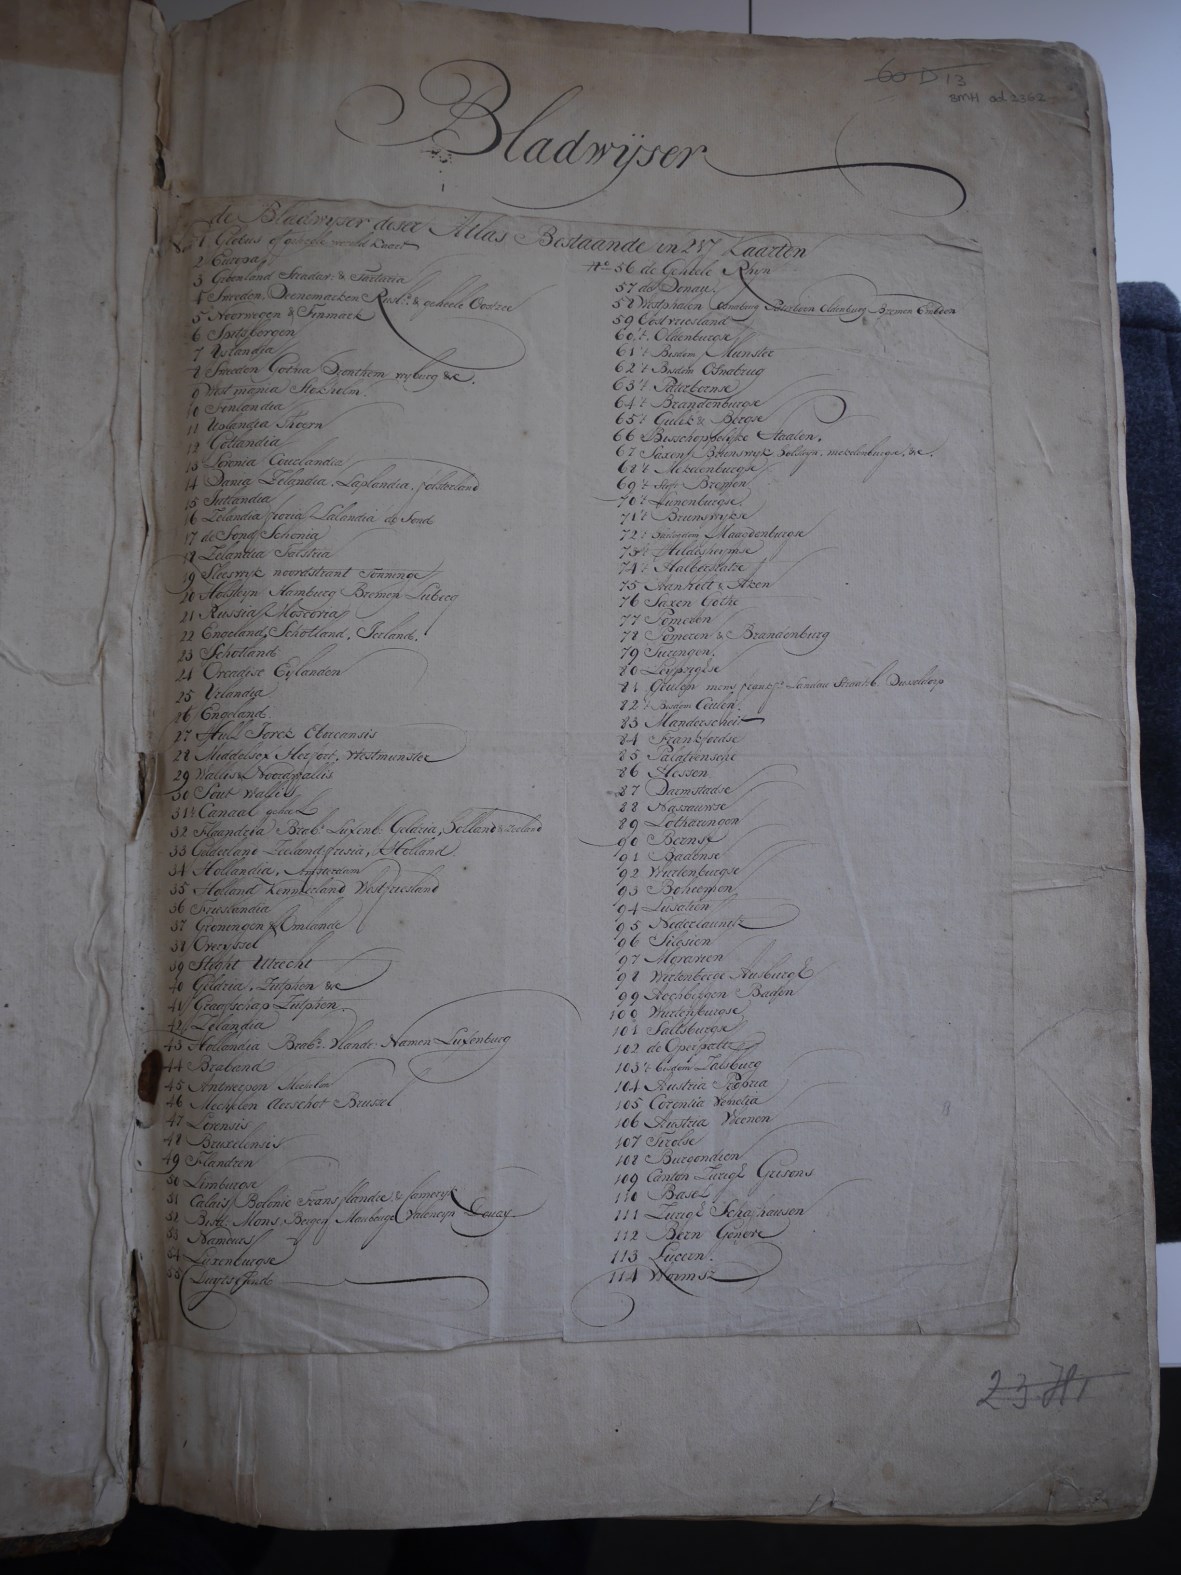 60 D 13
BMH od 2362
Bladwijser
de Bladwyser deser Atlas Bestaande in 217 Kaarten
No 1 Globus of geheele wereld kaart
2 Europa
3 Groenland Stradav: & Tartaria
4 Sweeden, Deenemarcken Rusl: & geheele Oostzee
5 Noorwegen & Finmark
6 Spitzbergen
7 Yslandia
8 Sweeden Gothia wyburg &c.
9 Westmania Stokholm.
10 Finlandia
11 Uplandia Thoorn
12 Gotlandia
13 Livonia Courlandia
14 Dania Zelandia. Laplandia.
15 Jutlandia
16 Zelandia Lalandia de Sond
17 de Sond Schonia
18 Zelandia Holsatia
19 Sleeswyk noordstrant Tonninge
20 Holsteyn Hamburg Bremen Lubecq
21 Russia Moscovia
22 Engeland, Schotland, Ierland.
23 Schotland
24 Orcadise Eylanden
25 Irlandia
26 Engeland.
27 Hull Iorck
28 Middelsex Herfort, Westmunster
29 Wallis Noordwallis
30 Sout Wallis
31 t Canaal geheel
32 Flaandria Brab: Luxenb: Geldria, Holland & Zeeland
33 Gelderland Zeeland frisia, Holland.
34 Hollandia, Amsterdam
35 Holland Kenmerland Westfriesland
36 Frieslandia
37 Groningen & Omlande
38 Overyssel
39 Stight Utrecht
40 Geldria, Zutphen &c
41 Graafschap Zutphen.
42 Zelandia
43 Hollandia Brab: Vlandr: Namen Luxenburg
44 Braband
45 Antwerpen Mechelen
46 Mechelen Aerschot Brussel
47 Lovensis
48 Bruxelensis
49 Flandren
50 Limburgse
51 Calais Bolonie Frans flandre & Cameryk
52 Mons, Bergen, Maubeuge Valencyn Douay
53 Namours
54 Luxenburgse
55 Luykse
No 56 de Geheele Rhyn
57 de Donau
58 Westphalen Osnabrug Paterborn Oldenburg Bremen Embden
59 Oostvriesland
60 t. Oldenburgse
61 t Bisdom Munster
62 t Bisdom Osnabrug
63 t Paterbornse
64 t Brandenburgse
65 t Gulik & Bergse
66 Bisschoppelyke Staaten.
67 Saxen Brunswyk holsteyn. mekelenburgse, &c.
68 t Mekelenburgse
69 t Stift Bremen
70 t Lunenburgse
71 t Brunswykse
72 t Maagdenburgse
73 t Hildesheymse
74 t Halberstatze
75 Aanholt & Aken
76 Saxen Gothe
77 Pomeren
78 Pomeren & Brandenburg
79 Turengen.
80 Leypzigse
81 Geulen mens Landau Straatsb. Dusseldorp
82 t Bisdom Ceulen.
83 Manderscheit
84 Frankfordse
85 Palatiensche
86 Hessen
87 Darmstadse
88 Nassauwse
89 Lotharingen
90
91 Badense
92 Wirtenburgse
93 Boheemen
94 Lusatien
95 Nederlausnitz
96 Silesien
97 Moravien
98 Wirtenberge Ausburgse
99 Hochbergen Baden
100 Wirtenburgse
101 Saltsburgse
102 de Operpaltz
103 t bisdom Salsburg
104 Austria Propria
105 Carentia Venetia
106 Austria Weenen
107 Tirolse
108 Burgondien
109 Canton Zurigh Grisons
110 Basel
111 Zurigh Schafhausen
112 Bern Geneve
113 Lucern.
114 Worms